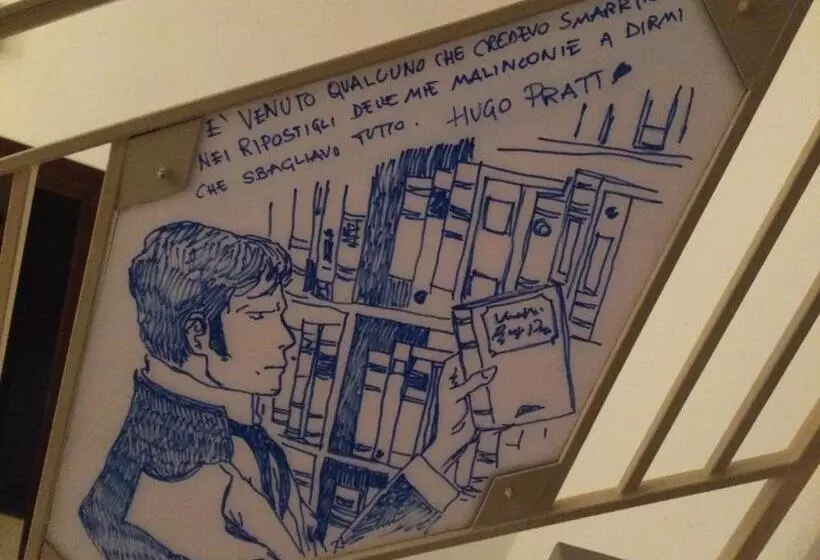 E' VENUTO QUALCUNO CHE CREDEVO SMARRITO
NEI RIPOSTIGLI DELLE MIE MALINCONIE A DIRMI
CHE SBAGLIAVO TUTTO. HUGO PRATT